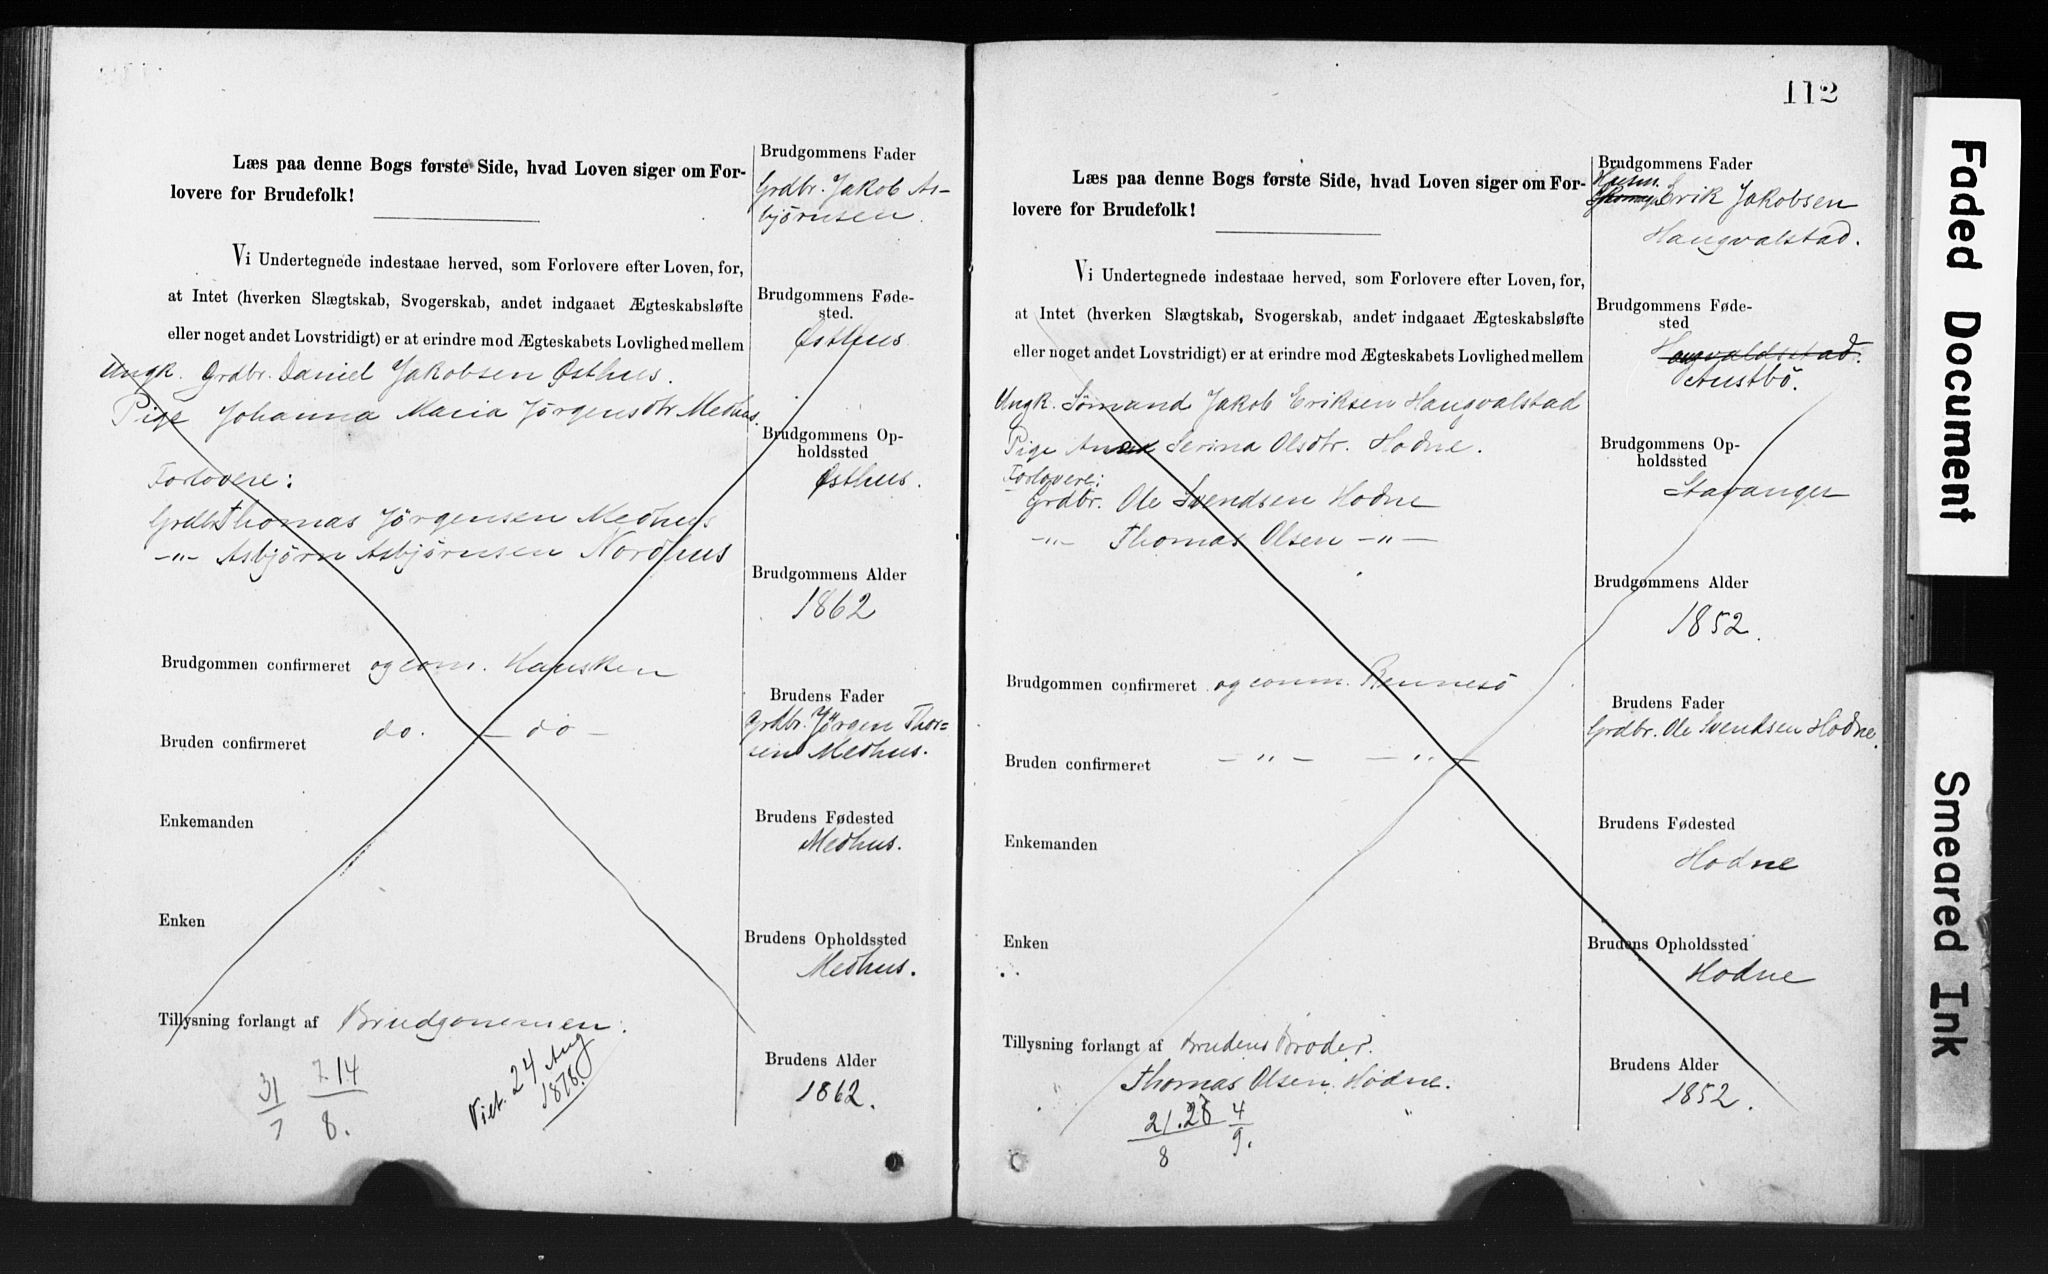 Læs paa denne Bogs første Side, hvad Loven siger om For-
lovere for Brudefolk!
Vi Undertegnede indestaae herved, som Forlovere efter Loven, for,
at Intet (hverken Slægtskab, Svogerskab, andet indgaaet Ægteskabsløfte
eller noget andet Lovstridigt) er at erindre mod Ægteskabets Lovlighed mellem
Ungk. Grdbr. Daniel Jakobsen Østhus.
Pige Johanna Maria Jørgensdtr Medhus.
Forlovere:
Grdbr Thomas Jørgensen Medhus
-"- Asbjørn Asbjørnsen Nordhus
Brudgommen confirmeret og com. Hausken
Bruden confirmeret do. - do -
Enkemanden
Enken
Tillysning forlangt af Brudgommen.
31 7. 14
7 8.
Viet. 24 Aug
1878.
Brudgommens Fader
Grdbr. Jakob As-
bjørnsen.
Brudgommens Føde-
sted.
Østhus
Brudgommens Op-
holdssted
Østhus.
Brudgommens Alder
1862
Brudens Fader
Grdbr. Jørgen Thor-
sen Medhus.
Brudens Fødested
Medhus.
Brudens Opholdssted
Medhus.
Brudens Alder
1862.
112
Læs paa denne Bogs første Side, hvad Loven siger om For-
lovere for Brudefolk!
Vi Undertegnede indestaae herved, som Forlovere efter Loven, for,
at Intet (hverken Slægtskab, Svogerskab, andet indgaaet Ægteskabsløfte
eller noget andet Lovstridigt) er at erindre mod Ægteskabets Lovlighed mellem
Ungk. Sømand Jakob Eriksen Haugvalstad
Pige Serina Olsdtr. Hodne.
Forlovere:
Grdbr. Ole Svendsen Hodne
-"- Thomas Olsen -"-
Brudgommen confirmeret og comm. Rennesö
Bruden confirmeret -"- -"-
Enkemanden
Enken
Tillysning forlangt af Brudens Broder.
Thomas Olsen Hodne.
21. 28 4
8 9.
Brudgommens Fader
Husm.
Erik Jakobsen
Haugvalstad.
Brudgommens Føde-
sted
Haugvaldstad.
Austbö.
Brudgommens Op-
holdssted
Stavanger
Brudgommens Alder
1852.
Brudens Fader
Grdbr. Ole Svendsen Hodne.
Brudens Fødested
Hodne
Brudens Opholdssted
Hodne
Brudens Alder
1852.
Faded Document
Smeared Ink